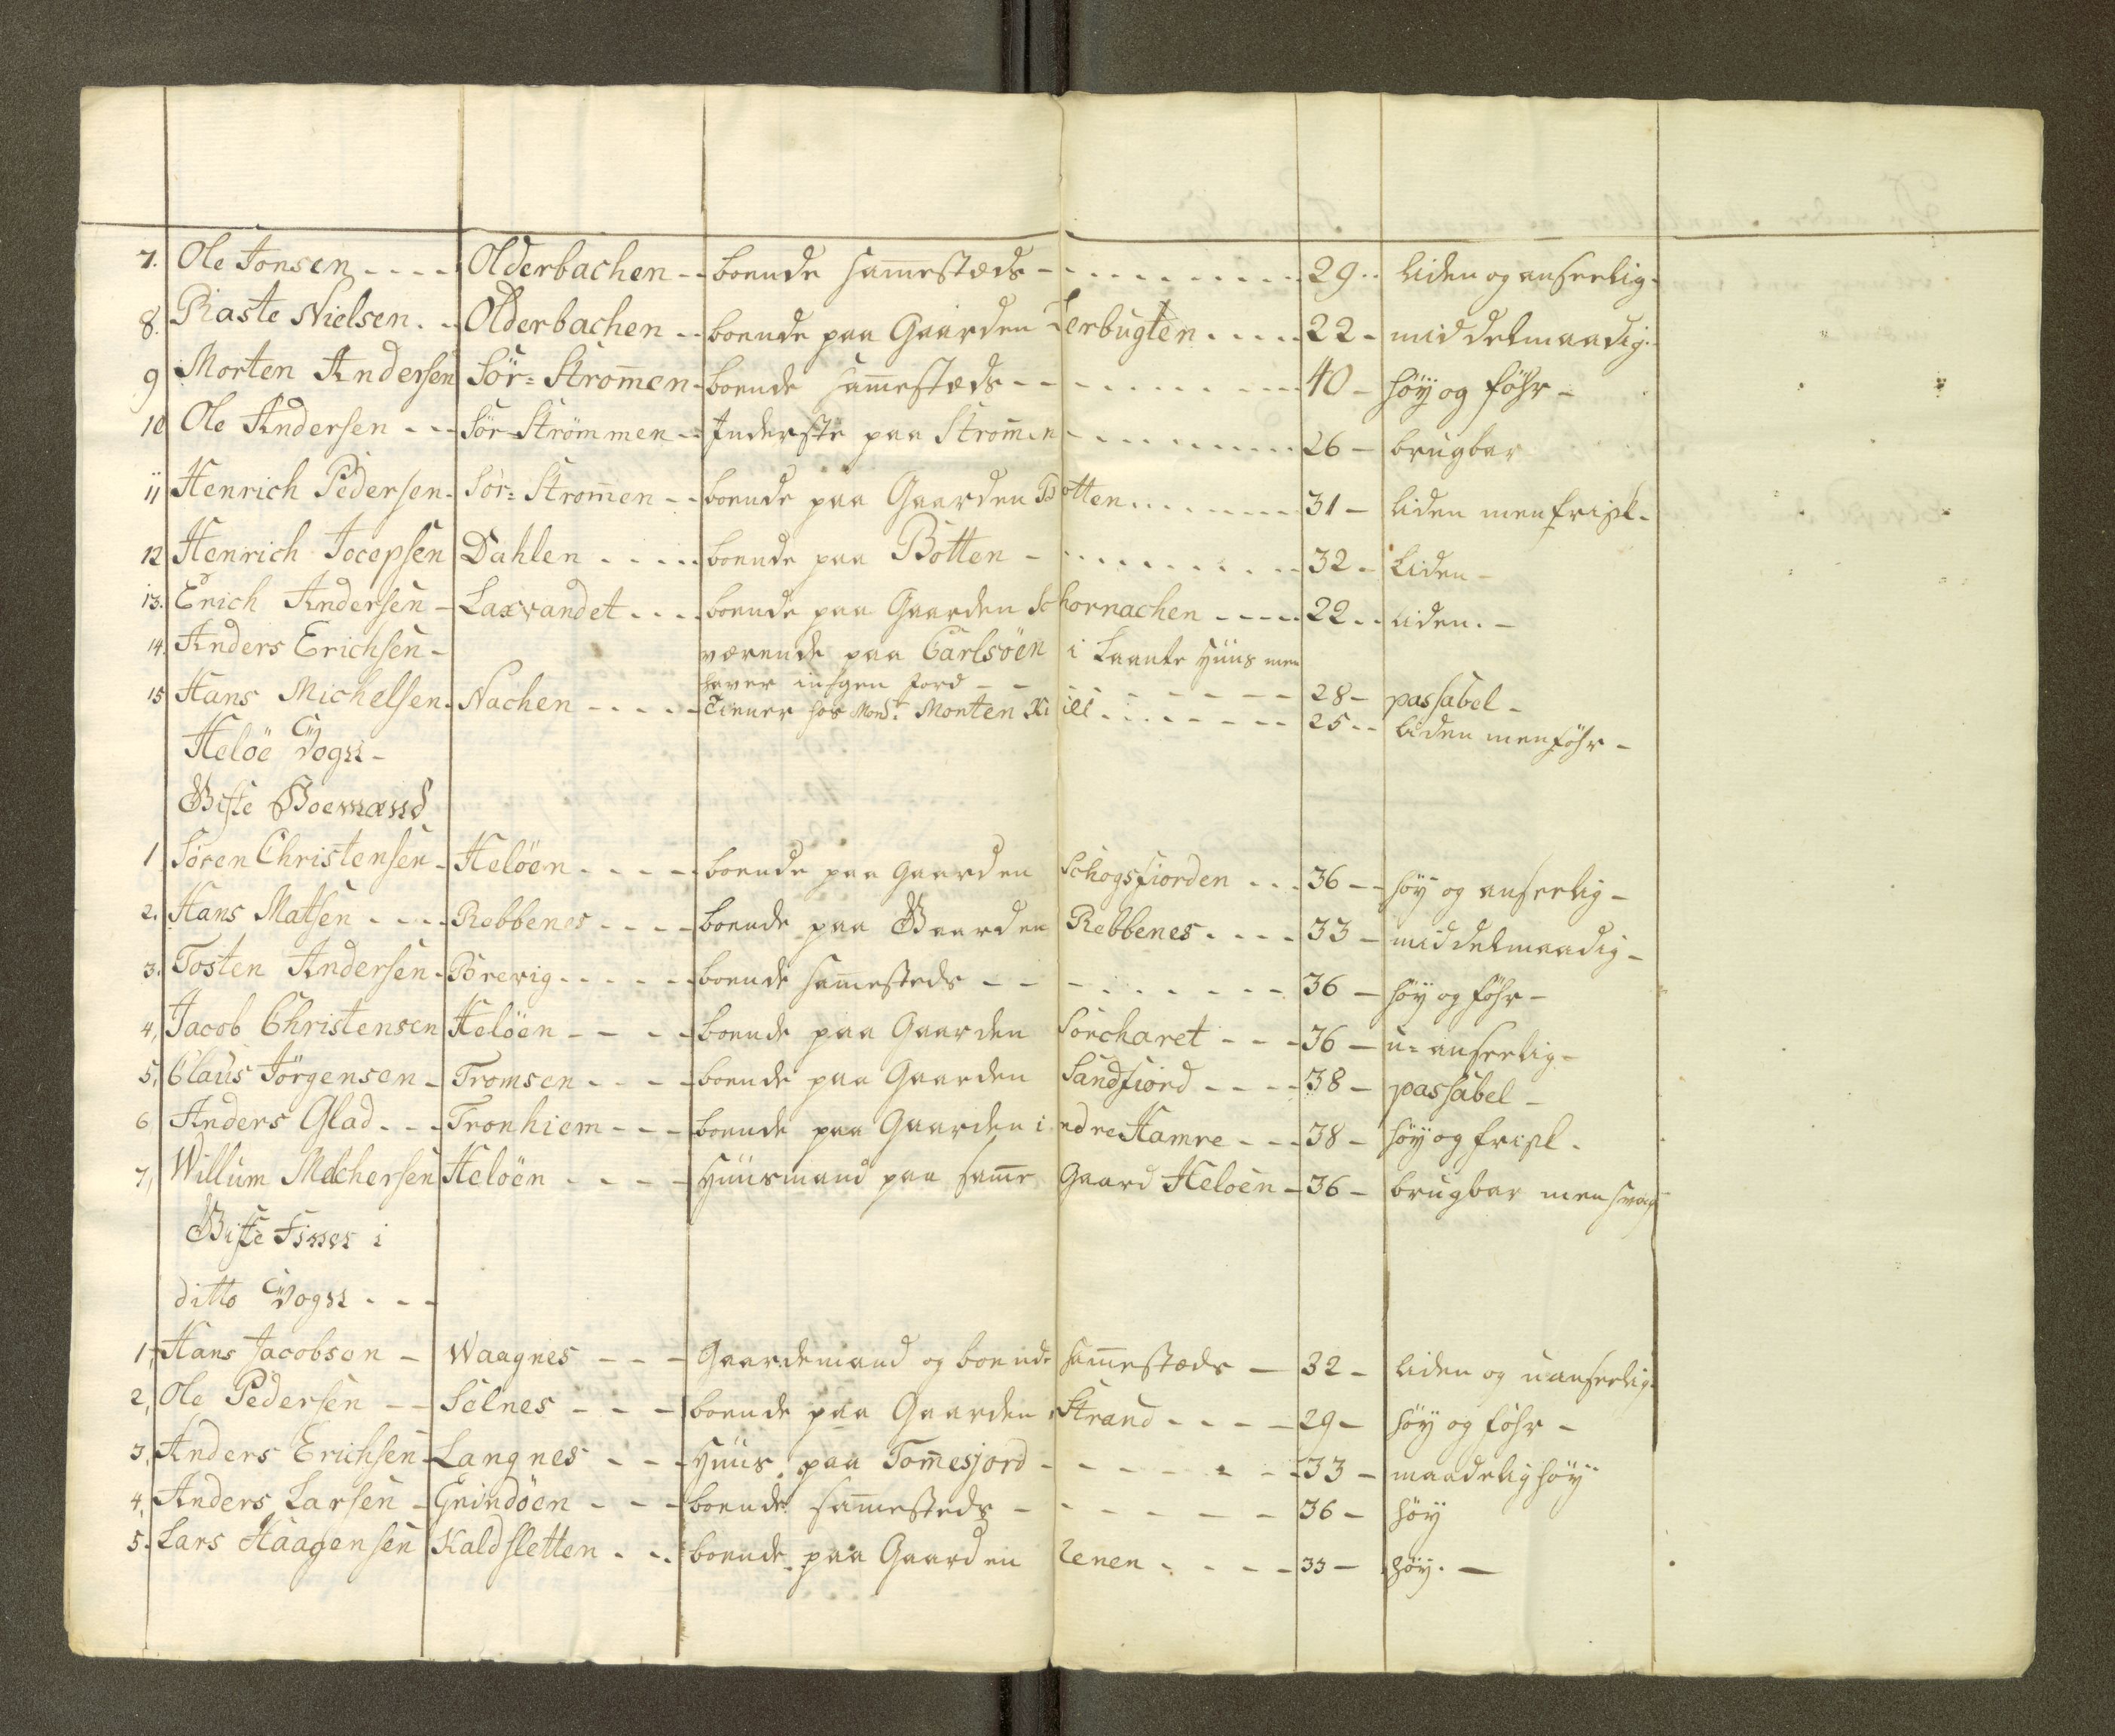 7. Ole Jonsen - - - - Olderbachen - - boende sam̄estæds - - - - - - - - - - 29 - - liden og anseelig -
8. Raste Nielsen - - Olderbachen - - boende paa Gaarden Lerbugten - - - - 22 - middelmaadig -
9 Morten Andersen Sör = Strom̄en - boende sam̄estæds - - - - - - - - 40 - höy og föhr -
10 Ole Andersen - - - Sör Strömmen - - Inderste paa Strom̄en - - - - - - - - 26 - brugbar
11 Henrich Pedersen - Sör = Strom̄en - - boende paa Gaarden Botten - - - - - - - 31 - liden men frisk -
12 Henrich Jocepsen Dahlen - - - - - boende paa Botten - - - - - - - - - 32 - Liden -
13. Erich Andersen - Laxvandet - - - - boende paa Gaarden Schornachen - - - - 22 - - liden. -
14. Anders Erichsen - værende paa Carlsöen i Laante Huus men
haver ingen Jord - - - - - - - - - 28 - passabel -
15 Hans Michelsen - Nachen - - - - - Tiener hos Mons.r Monten - - - - - - - - 25 - - liden men föhr -
Helöe Sogn -
Gifte Boemænd
1 Sören Christensen - Helöen - - - - boende paa Gaarden Schogsfiorden - - - 36 - - höy og anseelig -
2. Hans Matsen - - - - Rebbenes - - - - boende paa Gaarden Rebbenes - - - - 33 - middelmaadig -
3. Tosten Andersen - Börevig - - - - - boende sam̄esteds - - - - - - - - 36 - höy og föhr -
4, Jacob Christensen Helöen - - - - boende paa Gaarden Sorcharet - - - 36 - u = anseelig -
5, Claus Jörgensen - Tromsen - - - - boende paa Gaarden Sandfiord - - - - 38 - passabel -
6 Anders Glad - - - Tronhiem - - - boende paa Gaarden indre Hamre - - - 38 - höy og frisk -
7, Willum Melchersen Helöen - - - - Huusmand paa sam̄e Gaard Helöen - 36 - brugbar men svag
Gifte Finner i
ditto Sogn - - -
1, Hans Jacobsen - Waagnes - - - Gaardemand og boende sam̄estæds - 32 - liden og uanseelig -
2, Ole Pedersen - - Selnes - - - boende paa Gaarden Strand - - - - 29 - höy og föhr -
3, Anders Erichsen - Langnes - - - Huus paa Tom̄esjord - - - - - - - 33 - maadelig höy
4, Anders Larsen - Grindöen - - - boende sam̄esteds - - - - - - - 36 - höy
5. Lars Haagensen Kaldsletten - - - boende paa Gaarden - - - - 33 - höy. -